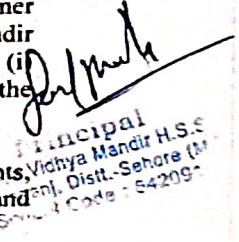 mer
dir
(i
the
Principal
nts, Vidhya Mandir H.S.S
anj, Distt.-Sehore (M
and Code : 54209